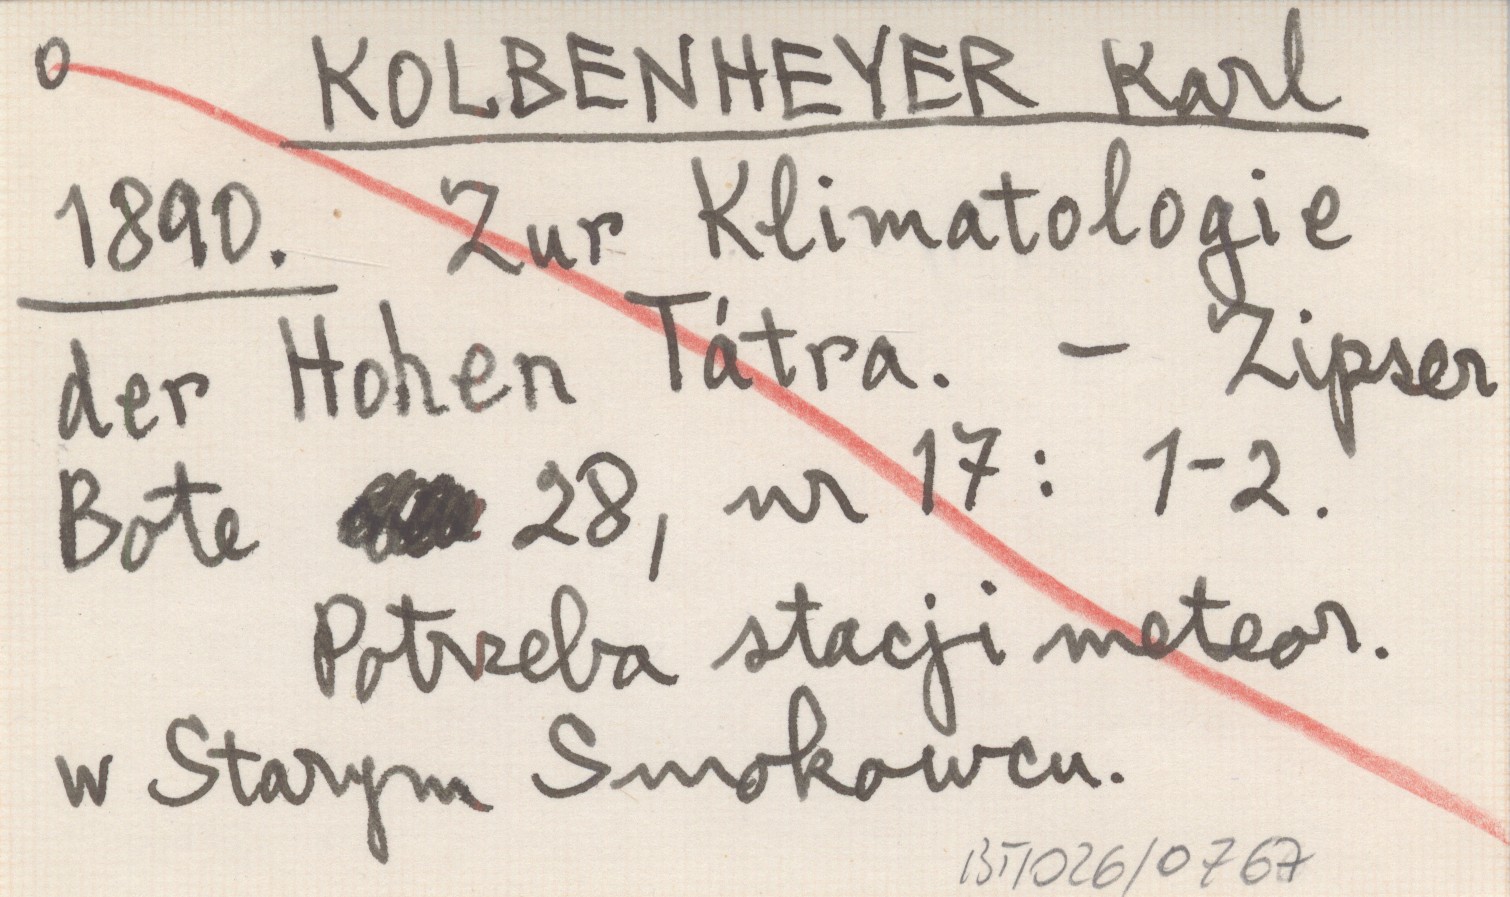 o KOLBENHEYER Karl
1890. Zur Klimatologie
der Hohen Tátra. – Zipser
Bote 28, nr 17: 1-2.
Potrzeba stacji meteor.
w Starym Smokowcu.
BT/026/0767